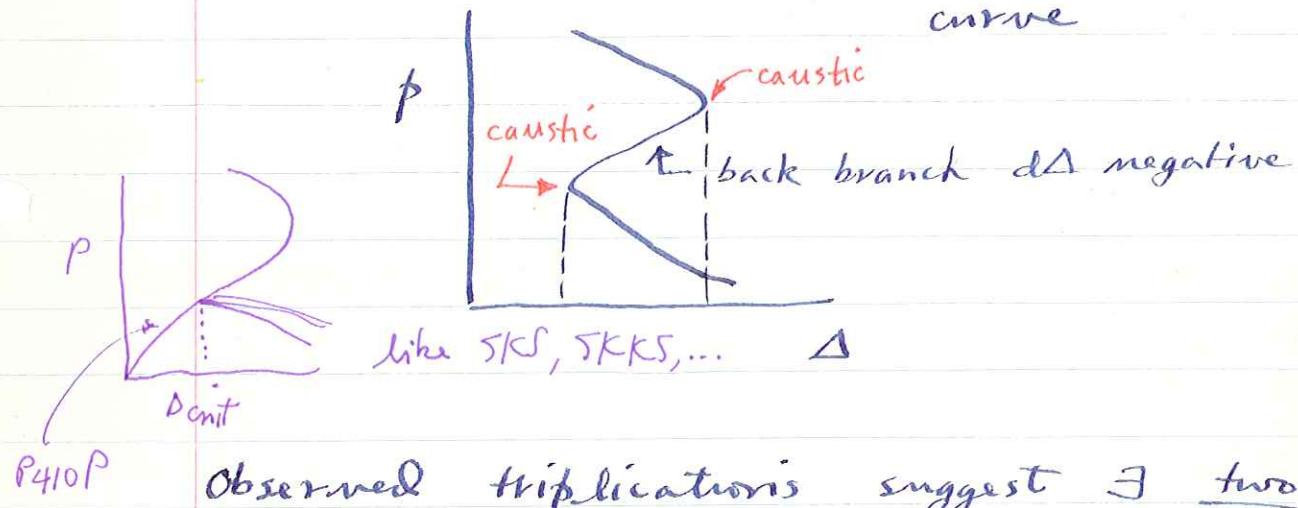 curve
p
caustic
caustic
back branch dΔ negative
p
like SKS, SKKS,... Δ
Δcrit
P410P
Observed triplications suggest ∃ two